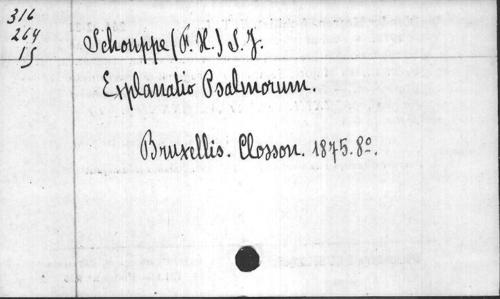 316
264
15
Schouppe (F. X.) S. J.
Explanatio Psalmorum.
Bruxellis. Closson. 1875. 8º.